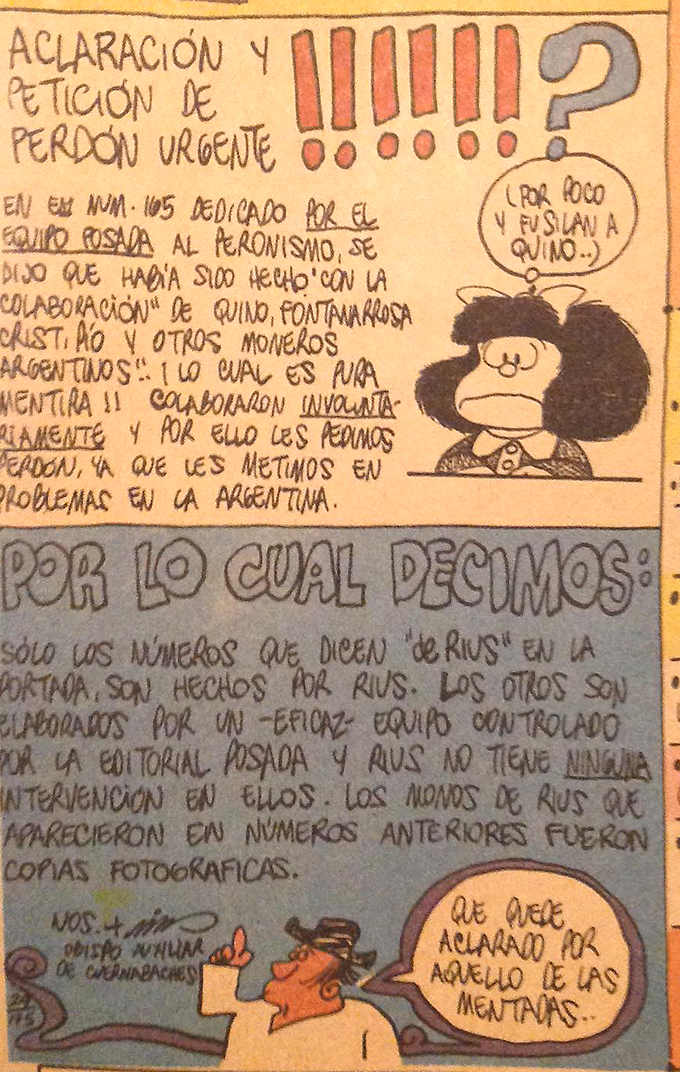 ACLARACIÓN Y
PETICIÓN DE
PERDÓN URGENTE !!!!!! ?
(POR POCO
Y FUSILAN A
QUINO..)
EN EL NUM. 165 DEDICADO POR EL
EQUIPO POSADA AL PERONISMO, SE
DIJO QUE HABÍA SIDO HECHO "CON LA
COLABORACIÓN" DE QUINO, FONTANARROSA
CRIST, PÍO Y OTROS MONEROS
ARGENTINOS".. ¡LO CUAL ES PURA
MENTIRA!! COLABORARON INVOLUNTA-
RIAMENTE Y POR ELLO LES PEDIMOS
PERDÓN, YA QUE LES METIMOS EN
PROBLEMAS EN LA ARGENTINA.
POR LO CUAL DECIMOS:
SÓLO LOS NÚMEROS QUE DICEN "de RIUS" EN LA
PORTADA, SON HECHOS POR RIUS. LOS OTROS SON
ELABORADOS POR UN -EFICAZ- EQUIPO CONTROLADO
POR LA EDITORIAL POSADA Y RIUS NO TIENE NINGUNA
INTERVENCIÓN EN ELLOS. LOS MONOS DE RIUS QUE
APARECIERON EN NÚMEROS ANTERIORES FUERON
COPIAS FOTOGRAFICAS.
NOS. +
OBISPO AUXILIAR
DE CUERNABACHES
QUE QUEDE
ACLARADO POR
AQUELLO DE LAS
MENTADAS..